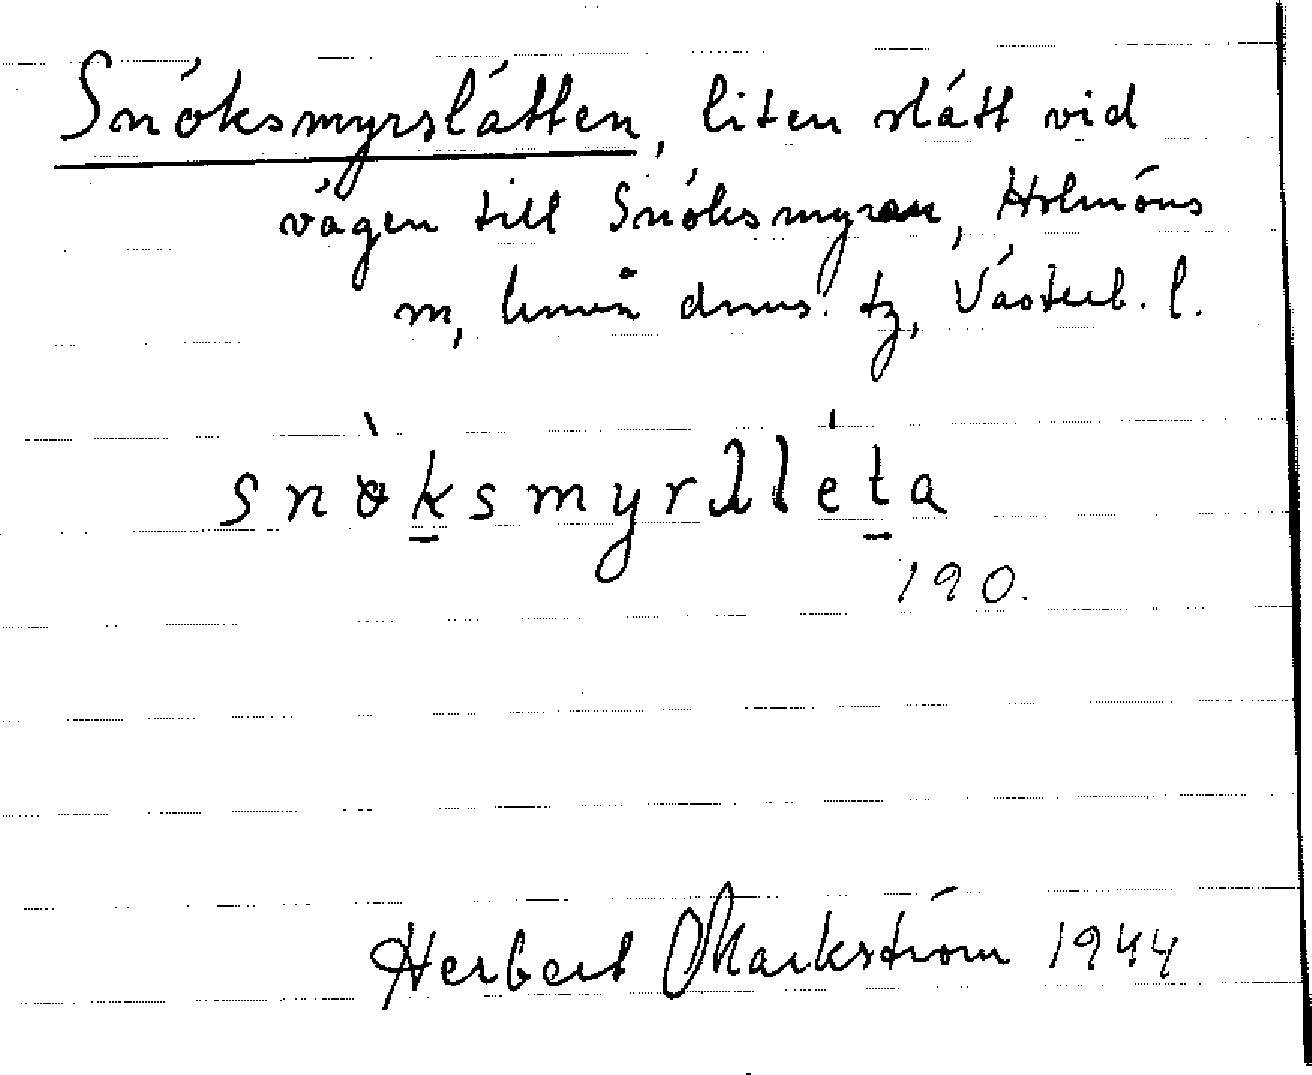 Snöksmyrslåtten, liten slått vid
vägen till Snöksmyran, Holmöns
sn, Umeå dmvs. tg, Västerb. l.
snøksmyrlléta
190.
Herbert Markström 1944